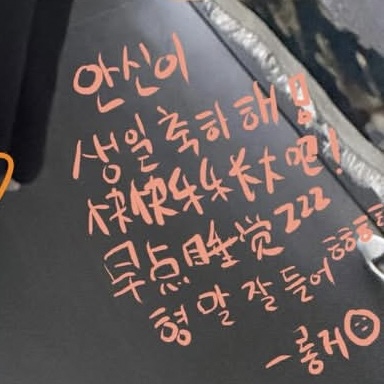 안신이
생일 축하해!
快快乐乐长大吧!
早点睡觉zzz
형 말 잘 들어ㅎㅎㅎㅎ
一롱거